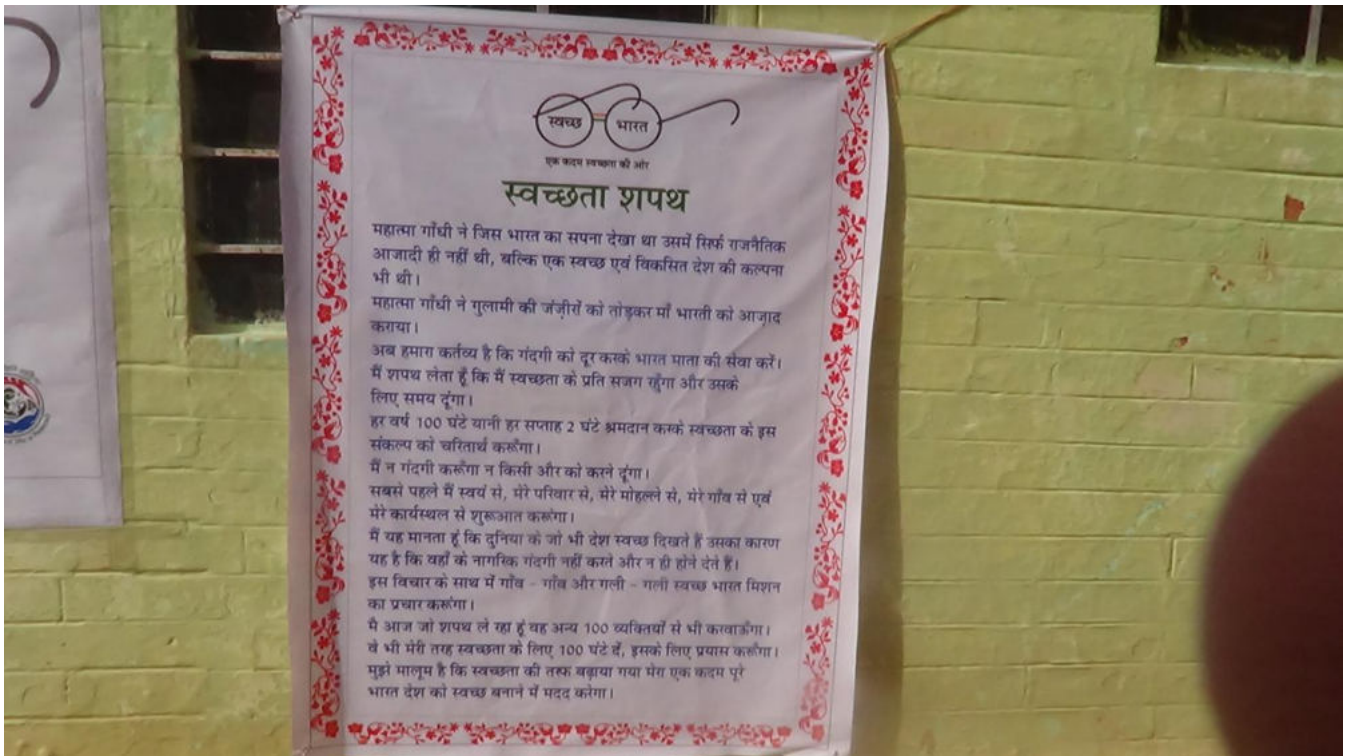 स्वच्छ भारत
एक कदम स्वच्छता की ओर
स्वच्छता शपथ
महात्मा गाँधी ने जिस भारत का सपना देखा था उसमें सिर्फ राजनैतिक
आजादी ही नहीं थी, बल्कि एक स्वच्छ एवं विकसित देश की कल्पना
भी थी।
महात्मा गाँधी ने गुलामी की जंज़ीरों को तोड़कर माँ भारती को आज़ाद
कराया।
अब हमारा कर्तव्य है कि गंदगी को दूर करके भारत माता की सेवा करें।
मैं शपथ लेता हूँ कि मैं स्वच्छता के प्रति सजग रहूँगा और उसके
लिए समय दूंगा।
हर वर्ष 100 घंटे यानी हर सप्ताह 2 घंटे श्रमदान करके स्वच्छता के इस
संकल्प को चरितार्थ करूँगा।
मैं न गंदगी करूँगा न किसी और को करने दूंगा।
सबसे पहले मैं स्वयं से, मेरे परिवार से, मेरे मोहल्ले से, मेरे गाँव से एवं
मेरे कार्यस्थल से शुरूआत करूंगा।
मैं यह मानता हूं कि दुनिया के जो भी देश स्वच्छ दिखते हैं उसका कारण
यह है कि वहाँ के नागरिक गंदगी नहीं करते और न ही होने देते हैं।
इस विचार के साथ मैं गाँव - गाँव और गली - गली स्वच्छ भारत मिशन
का प्रचार करूंगा।
मै आज जो शपथ ले रहा हूं वह अन्य 100 व्यक्तियों से भी करवाऊँगा।
वे भी मेरी तरह स्वच्छता के लिए 100 घंटे दें, इसके लिए प्रयास करूँगा।
मुझे मालूम है कि स्वच्छता की तरफ बढ़ाया गया मेरा एक कदम पूरे
भारत देश को स्वच्छ बनाने में मदद करेगा।